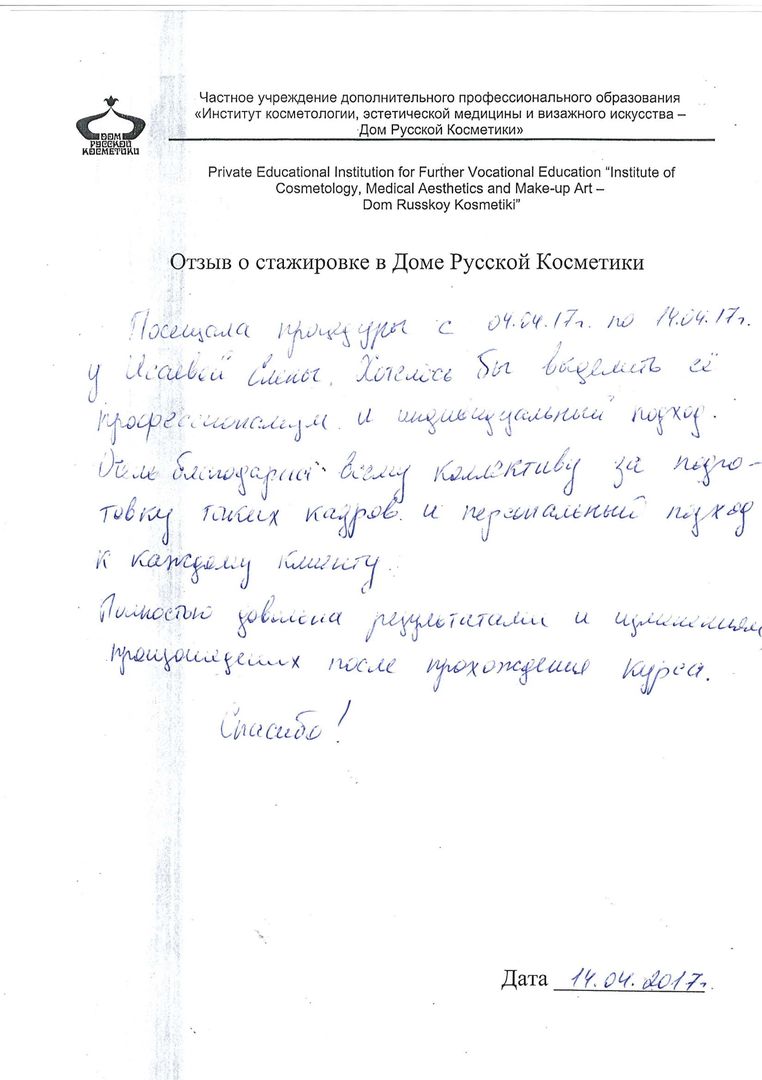 Частное учреждение дополнительного профессионального образования
«Институт косметологии, эстетической медицины и визажного искусства –
Дом Русской Косметики»
ДОМ
РУССКОЙ
КОСМЕТИКИ
Private Educational Institution for Further Vocational Education “Institute of
Cosmetology, Medical Aesthetics and Make-up Art –
Dom Russkoy Kosmetiki”
Отзыв о стажировке в Доме Русской Косметики
Посещала процедуры с 04.04.17г. по 14.04.17г.
у Исаевой Елены. Хотелось бы выделить её
профессионализм и индивидуальный подход.
благодарна всему коллективу за подго-
товку таких кадров и персональный подход
к каждому клиенту.
Полностью довольна результатами и изменениями
произошедших после прохождения курса.
Спасибо!
Дата 14.04.2017г.